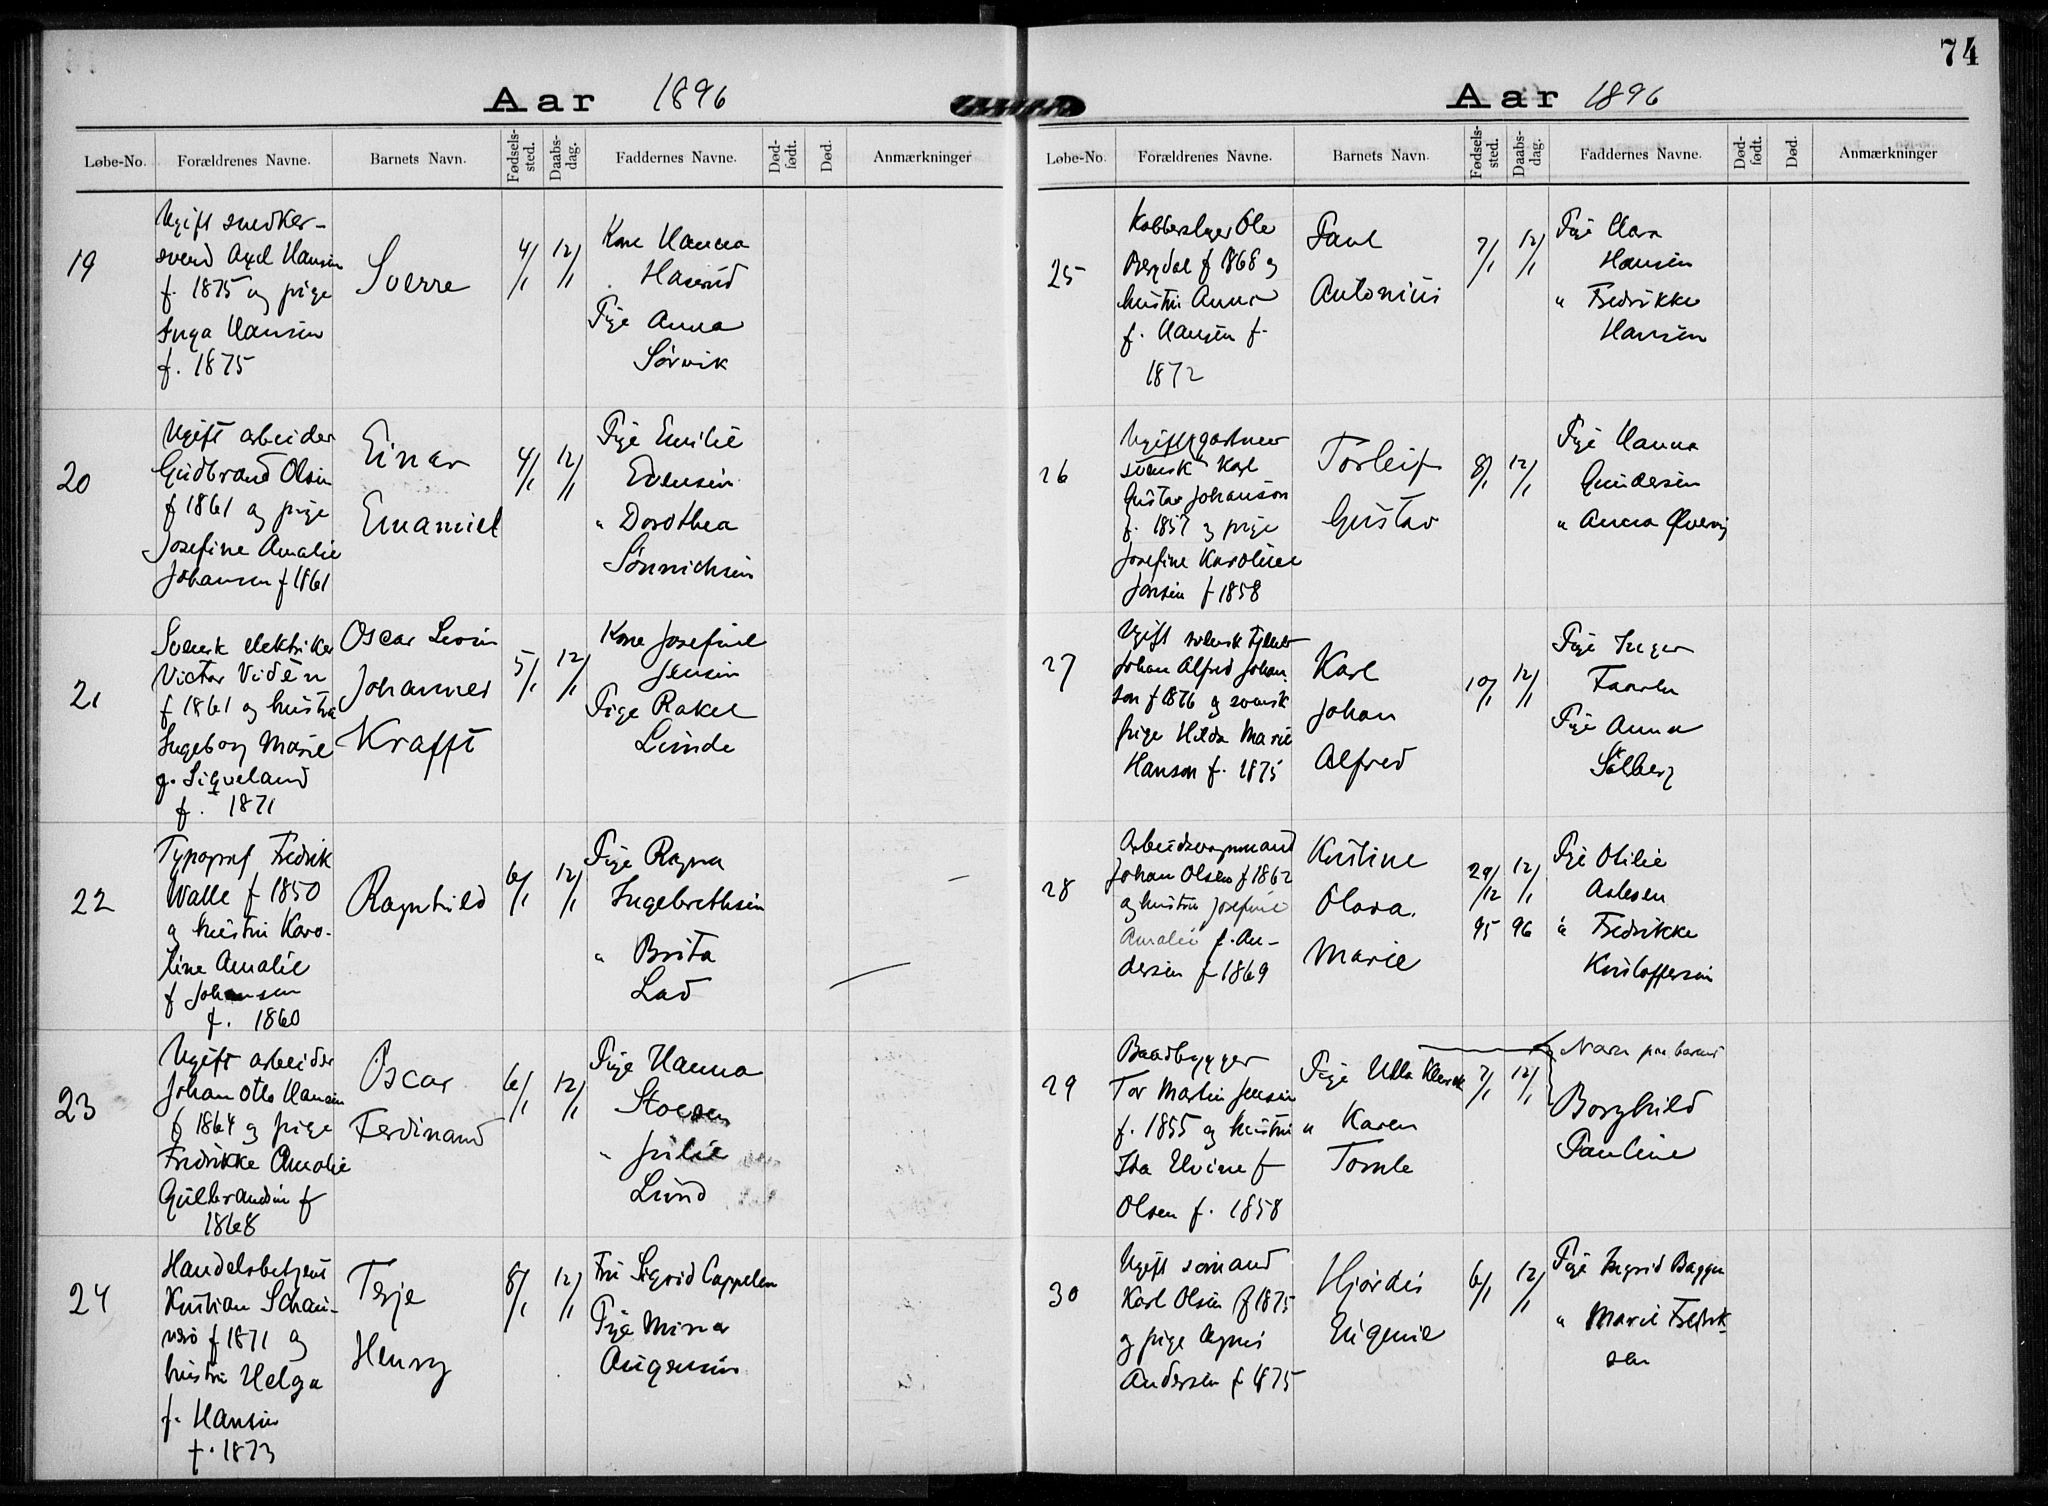 74
Aar 1896
Løbe-No. Forældrenes Navne. Barnets Navn. Fødsels-sted. Daabs-dag. Faddernes Navne. Død-født. Død. Anmærkninger
19
Ugift snedker-
svend Axel Hansen
f. 1875 og pige
Inga Hansen
f. 1875
Sverre
4/1 12/1
Kone Hanna
Haserud
Pige Anna
Sørvik
20
Ugift arbeider
Gudbrand Olsen
f 1861 og pige
Josefine Amalie
Johansen f 1861
Einar
Emanuel
4/1 12/1
Pige Emilie
Evensen
" Dorothea
Sønnichsen
21
Svensk elektriker
Victor Vidén
f 1861 og hustru
Ingeborg Marie
f. Siqveland
f. 1871
Oscar
Johannes
Krafft
5/1 12/1
Kone Josefine
Jensen
Pige Rakel
Lunde
22
Typograf Fredrik
Walle f 1850
og hustru Karo-
line Amalie
f Johansen
f. 1860
Ragnhild
6/1 12/1
Pige Ragna
Ingebrethsen
" Brita
Lad
23
Ugift arbeider
Johan Otto Hansen
f 1864 og pige
Fredrikke Amalie
Gulbrandsen f
1868
Oscar
Ferdinand
6/1 12/1
Pige Hanna
Stoesen
" Julie
Lund
24
Handelsbetjent
Kristian Schau-
f 1871 og
hustru Helga
f. Hansen
f. 1873
Terje
Henry
8/1 12/1
Fru Sigrid Cappelen
Pige Minna
Augensen
Aar 1896
Løbe-No. Forældrenes Navne. Barnets Navn. Fødsels-sted. Daabs-dag. Faddernes Navne. Død-født. Død. Anmærkninger
25
Kobberslager Ole
Bergdal f 1868 og
hustru Anna
f. Hansen f.
1872
Paul
Antonius
7/1 12/1
Pige Clara
Hansen
" Fredrikke
Hansen
26
Ugift gartner
svensk Karl
Gustav Johanson
f. 1857 og pige
Josefine Karoline
Jonsen f 1858
Torleif
Gustav
8/1 12/1
Pige Hanna
Gundersen
" Anna
27
Ugift svensk
Johan Alfred Johan-
son f 1876 og svensk
pige Hilda Marie
Hanson f. 1875
Karl
Johan
Alfred
10/1 12/1
Pige Inger
Pige Anna
Sølberg
28
Arbeidsvognmand
Johan Olsen f 1862
og hustru Josefine
Amalie f. An-
dersen f 1869
Kristine
Olava
Marie
29/12 95 12/1 96
Pige Otilie
Aslesen
" Fredrikke
Kristoffersen
29
Baadbygger
Tor Martin Jensen
f. 1855 og hustru
Ida Elvine f
Olsen f. 1858
Pige Ulla
" Karen
Tomle
7/1 12/1
Navn paa barnet
Borghild
Pauline
30
Ugift sømand
Karl Olsen f 1875
og pige Agnes
Andersen f 1875
Hjørdis
Eugenie
6/1 12/1
Pige Ingrid Bagger
" Marie Fredrik-
sen